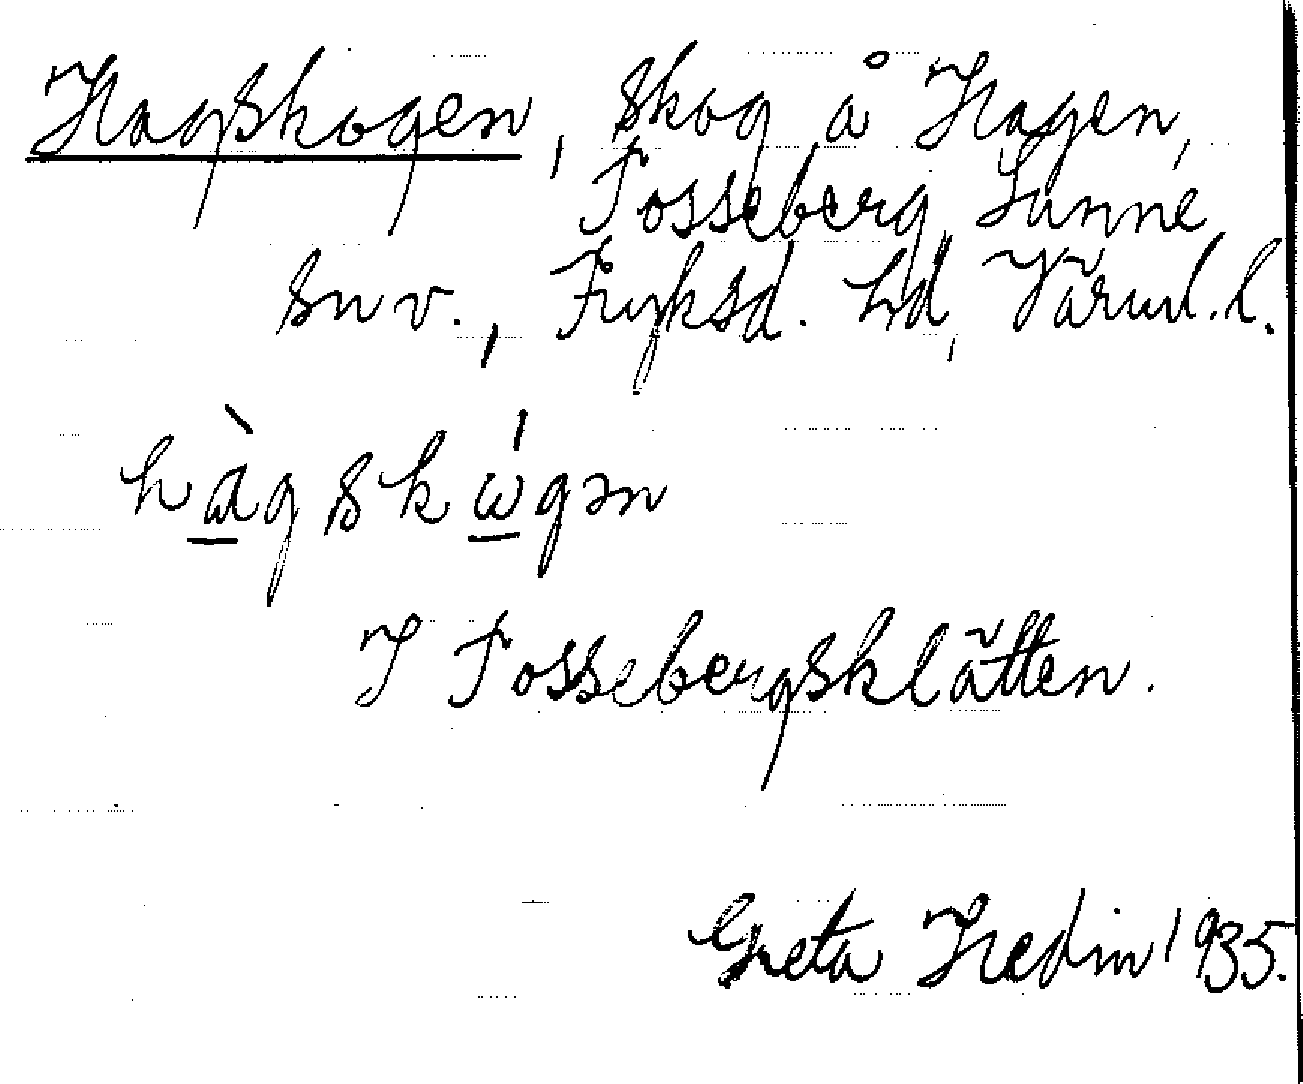 Hagskogen, skog å Hagen,
Fosseberg, Sunne
sn v., Fryksd. hd, Värml. l.
hàgskώgən
I Fossebergsklätten.
Greta Hedin 1935.